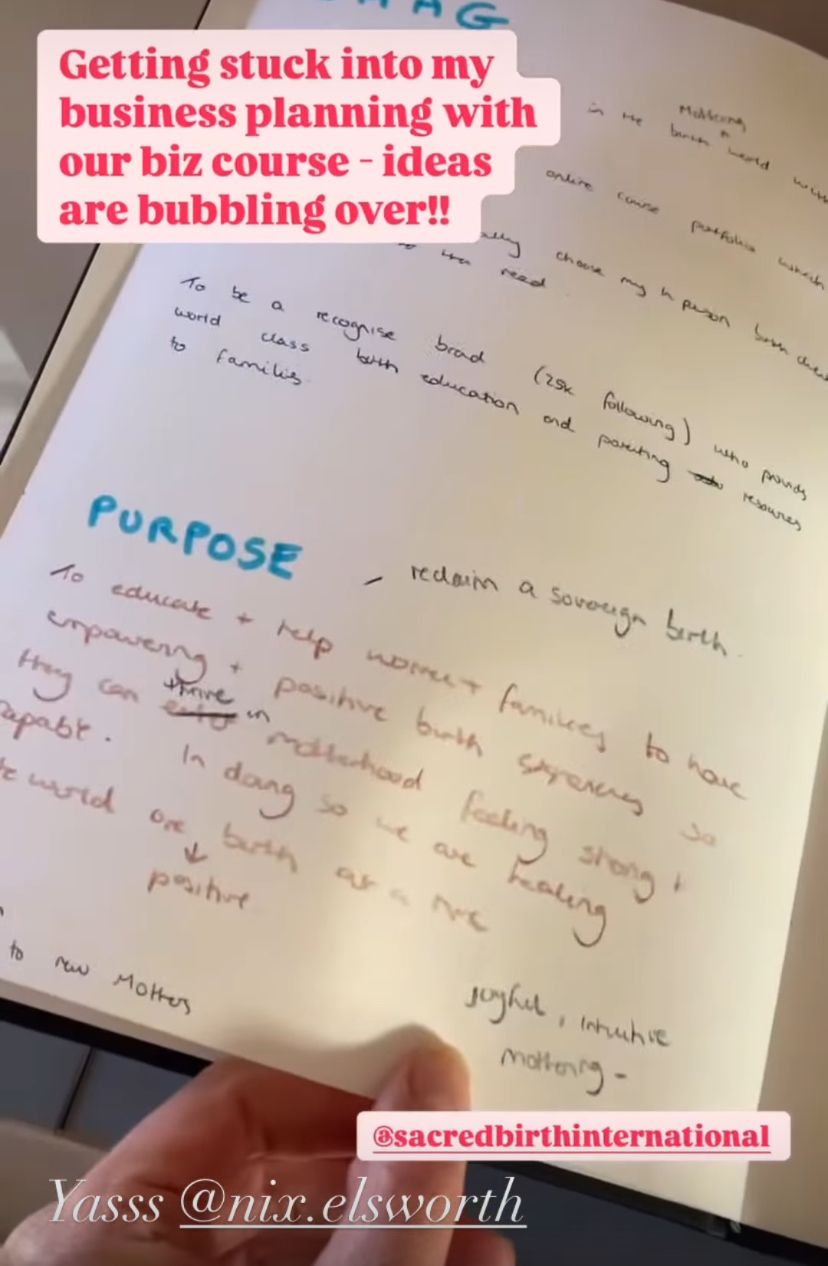 HAG
Getting stuck into my
business planning with
our biz course - ideas
are bubbling over!!
Mothering
in the birth world with
online course portfolio which
choose my in person birth
need.
To be a recognise brad (25k following) who provids
world class birth education and parenting resources
to families.
PURPOSE
reclaim a sovereign birth.
To educate + help women + families to have
empowering + positive birth so
they can thrive in motherhood feeling strong +
capable. In doing so we are healing
the world one birth at a time
positive
to new Mothers
joyful, intuitive
mothering -
@sacredbirthinternational
Yasss @nix.elsworth